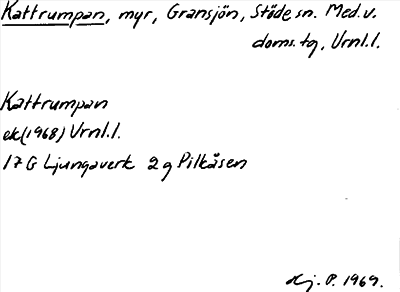 Kattrumpan, myr, Gransjön, Stöde sn. Med.v.
doms.tg, Vrnl.l.
Kattrumpan
ek(1968) Vrnl.l.
17 G Ljungaverk 2 g Pilkåsen
Hj. P. 1969.